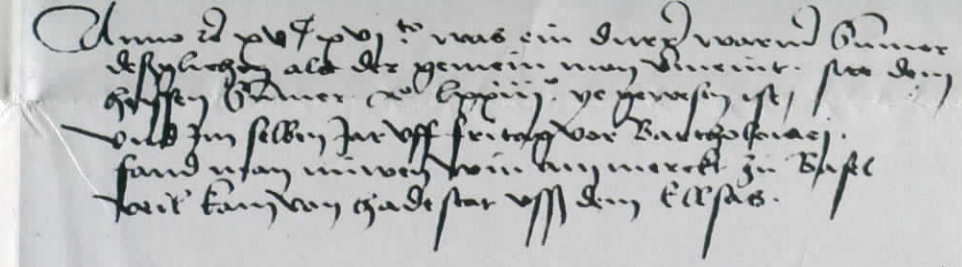 Anno etc xvc xvj to was ein durr warm Summer
desglichen als der gemein man vermeint sire dem
heyssen Summer xo lxxiiijo ye gewesen ist /
vnd jm selben jar vff fritag vor Bartholomej .
fand man nüwen win am merckt zu Basel
kam von hadestat vsß dem Ellsas .